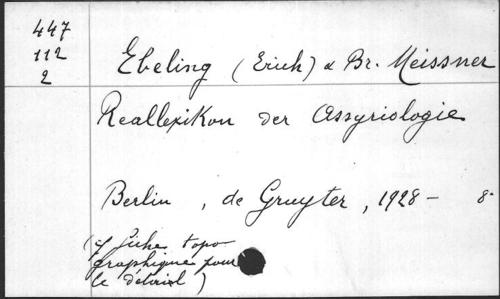 447
112
2
Ebeling (Erich) & Br. Meissner
Reallexikon der Assyriologie
Berlin, de Gruyter, 1928 - 8°
(cf fiche topo
graphique pour
le détail)